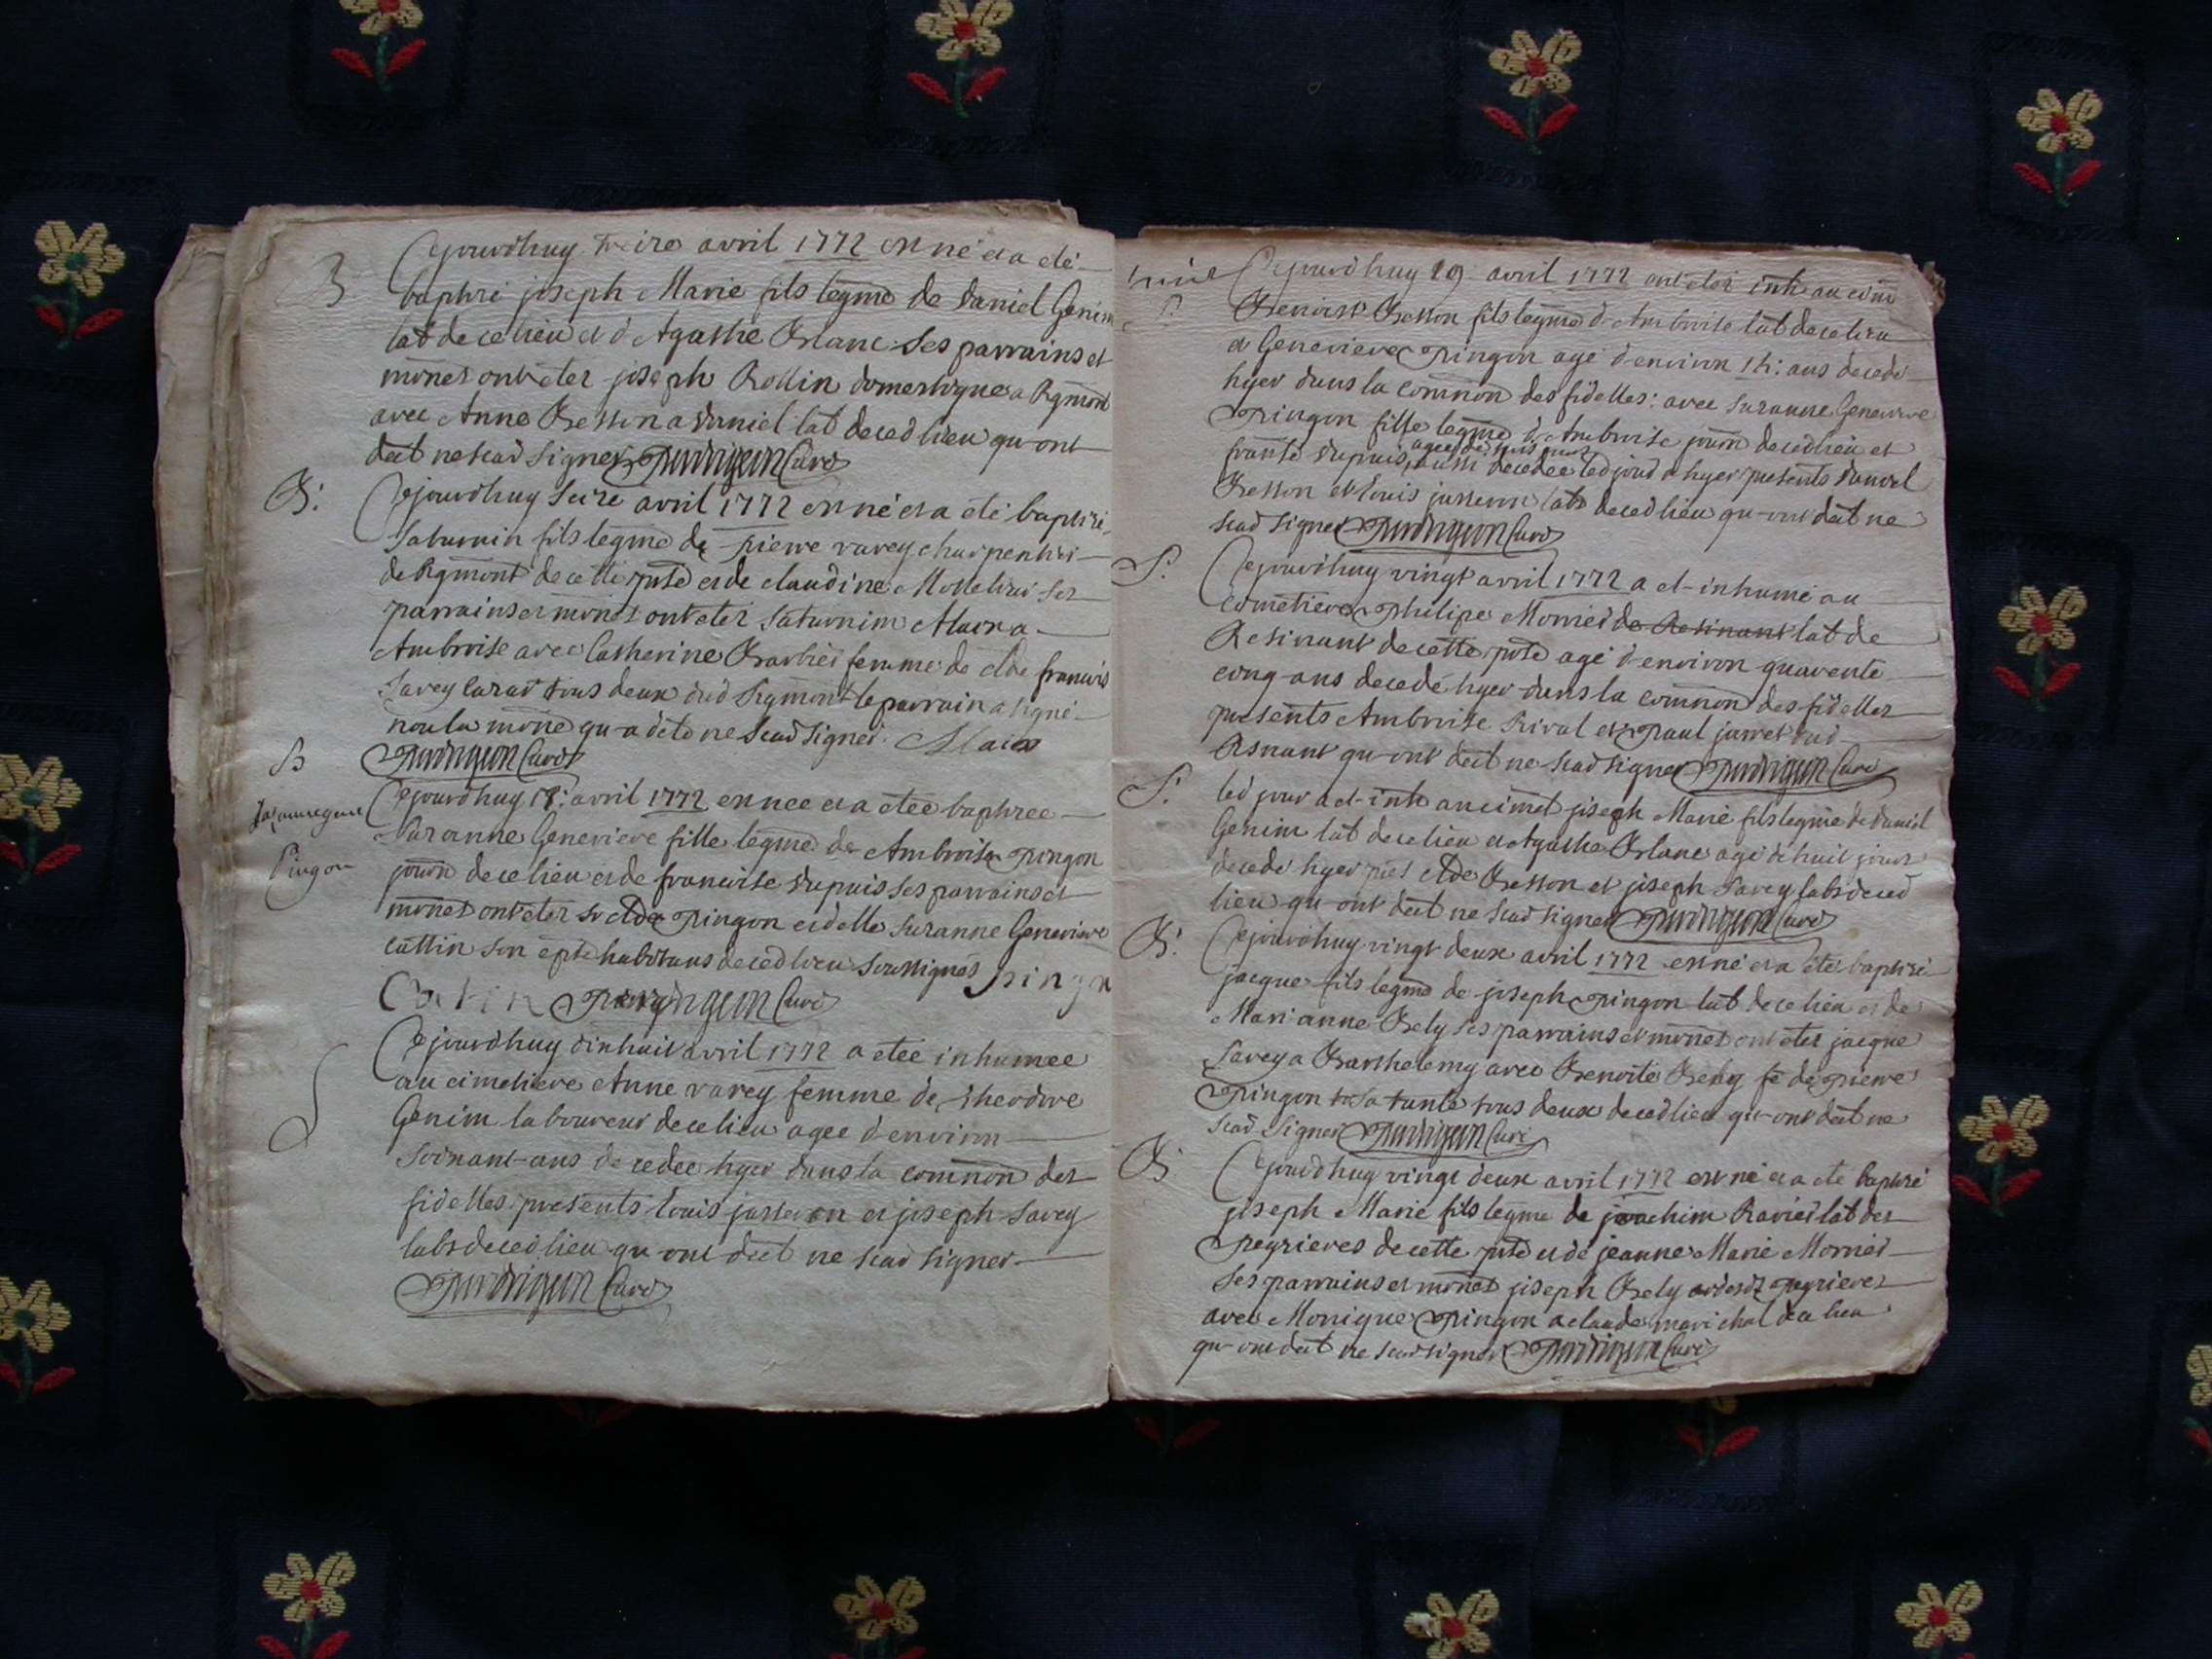 B
Cejourdhuy treize avril 1772 est né et a eté
baptizé joseph Marie fils legme de daniel Genin
lab de ce lieu et d'Agathe Blanc Ses parrains et
mones ont etez joseph Rollin domestique a
avec Anne Besson a daniel lab decedlieu qu-ont
deit ne scad signer Curé
B:
Cejourdhuy seize avril 1772 est né et a eté baptizé
Saturnin fils legme de pierre varey charpentier
de cette psse et de claudine ses
parrains et mones ont etez Saturnin a
Ambroise avec Catherine Barbier femme de cl'de francois
Savey tous deux dud le parrain a signé
non la mone qu-a deit ne scad signer.
Curé
B
Suzanne gene
Pingon
Cejourdhuy 18: avril 1772 est nee et a etée baptizee
Suzanne Genevieve fille legme de Ambroise pingon
journ de ce lieu et de francoise dupuis ses parrains et
mones ont etez sr cl'de pingon et delle Suzanne Genevieve
cattin son epse habitans decedlieu soussignés pingon
Catin Curé
S
Cejourdhuy dixhuit avril 1772 a etée inhumée
au cimetiere Anne varey femme de theodore
Genin laboureur de ce lieu agee d'environ
soixant-ans decedee hyer dans la common des
fidelles presents louis jusseron et joseph Savey
labs decedlieu qu-ont deit ne scad signer.
Curé
Cejourdhuy 19 avril 1772 ont etéz inh au cim
Benoist Besson fils legme d-Ambroise lab de ce lieu
et Genevieve pingon agé d'environ ans decedé
hyer dans la common des fidelles: avec Suzanne Genevieve
pingon fille legme d'Ambroise journ decedlieu et
agée de
dupuis aussi decedée led jour d'hyer presents daniel
Besson et louis jusseron labs decedlieu qu-ont deit ne
scad signer Curé
S.
Cejourdhuy vingt avril 1772 a et-inhumé au
cometiere philipe Mornier de Resinant lab de
Resinant de cette psse agé d'environ quarente
cinq-ans decedé hyer dans la common des fidelles
presents Ambroise Rival et paul jarret dud
Resnant qu-ont deit ne scad signer Curé
S.
led jour a et-inh au cimet joseph Marie fils legme de daniel
Genin lab de ce lieu et Agathe Blanc agé de huit jours
decedé hyer pres cl'de Besson et joseph Savey labs deced
lieu qu-ont deit ne scad signer Curé
B:
Cejourdhuy vingt deux avril 1772 est né et a eté baptizé
jacque fils legme de joseph pingon lab de ce lieu et de
Marianne Bely ses parrains et mones ont etez jacque
Savey a Barthelemy avec Benoite Bely fe de pierre
pingon sa tante tous deux decedlieu qu-ont deit ne
scad signer Curé
B
Cejourdhuy vingt deux avril 1772 est né et a eté baptizé
joseph Marie fils legme de joachim Ravier lab des
peyrieres de cette psse et de jeanne Marie Mornier
ses parrains et mones joseph Bely peyrieres
avec Monique pingon a claude marichal de ce lieu
qu-ont deit ne scad signer Curé